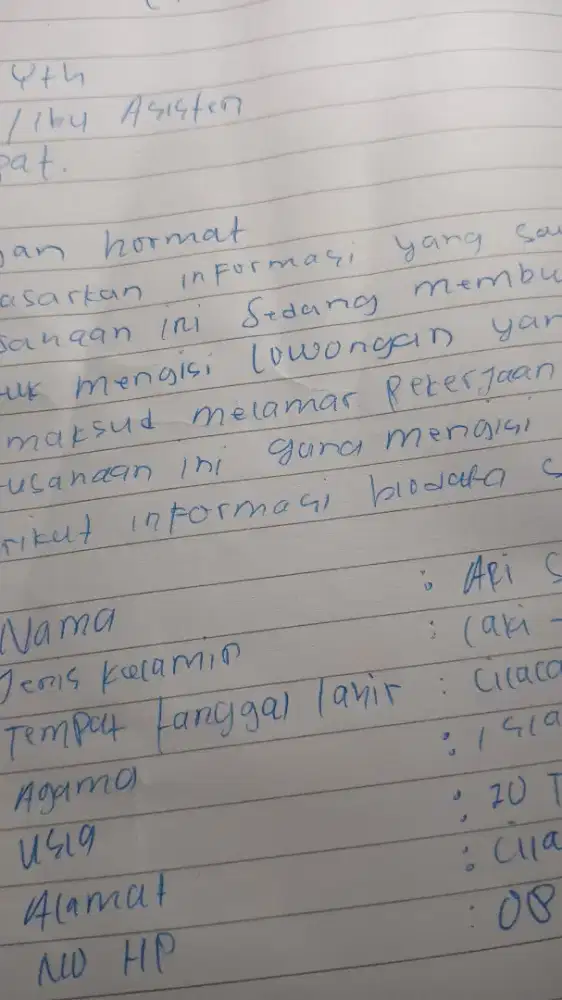 Yth
/Ibu Asisten
pat.
gan hormat
asarkan informasi yang sa
sahaan ini sedang membu
uk mengisi lowongan yan
maksud melamar pekerjaan
usahaan ini guna mengisi
rikut informasi biodata s
Nama : Api S
Jenis Kelamin : Laki -
Tempat tanggal lahir : Cilaca
Agama : Isla
Usia : 20 T
Alamat : Cila
NO HP : 08